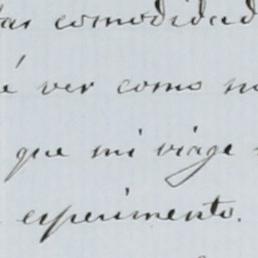 tas comodidad
é ver como no
que mi viage
experimento.